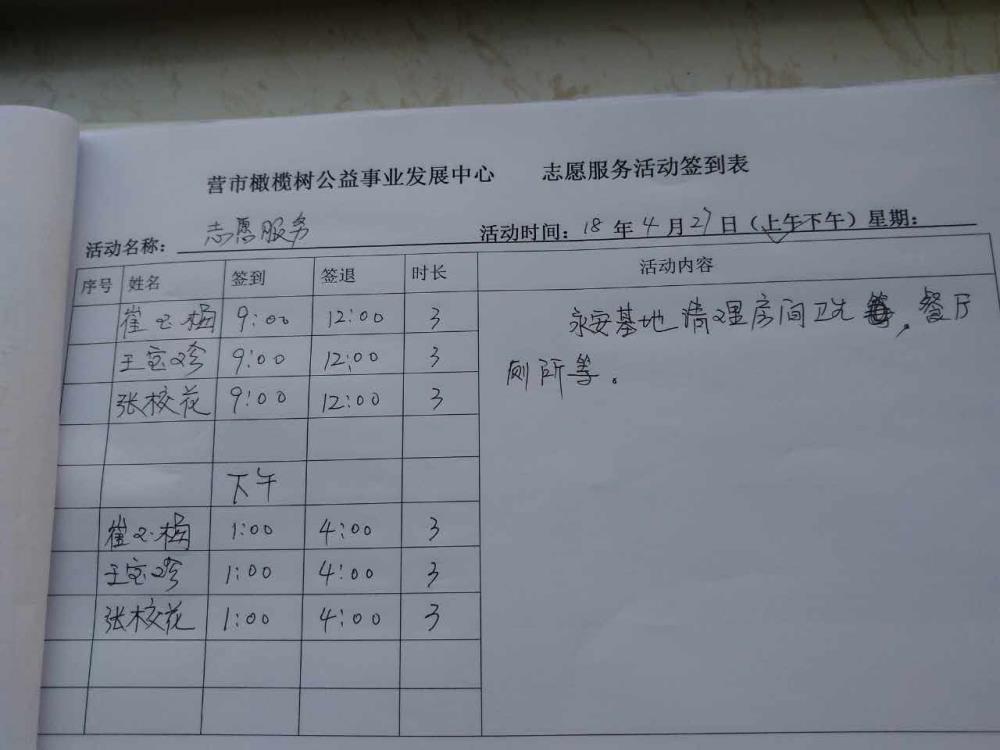 营市橄榄树公益事业发展中心 志愿服务活动签到表
活动名称: 志愿服务 活动时间: 18 年 4 月 27 日 (上午下午) 星期:
序号 姓名 签到 签退 时长 活动内容
崔玉梅 9:00 12:00 3
王宝珍 9:00 12:00 3
张校花 9:00 12:00 3
下午
崔玉梅 1:00 4:00 3
王宝珍 1:00 4:00 3
张校花 1:00 4:00 3
永安基地清理房间卫生,餐厅
厕所等。